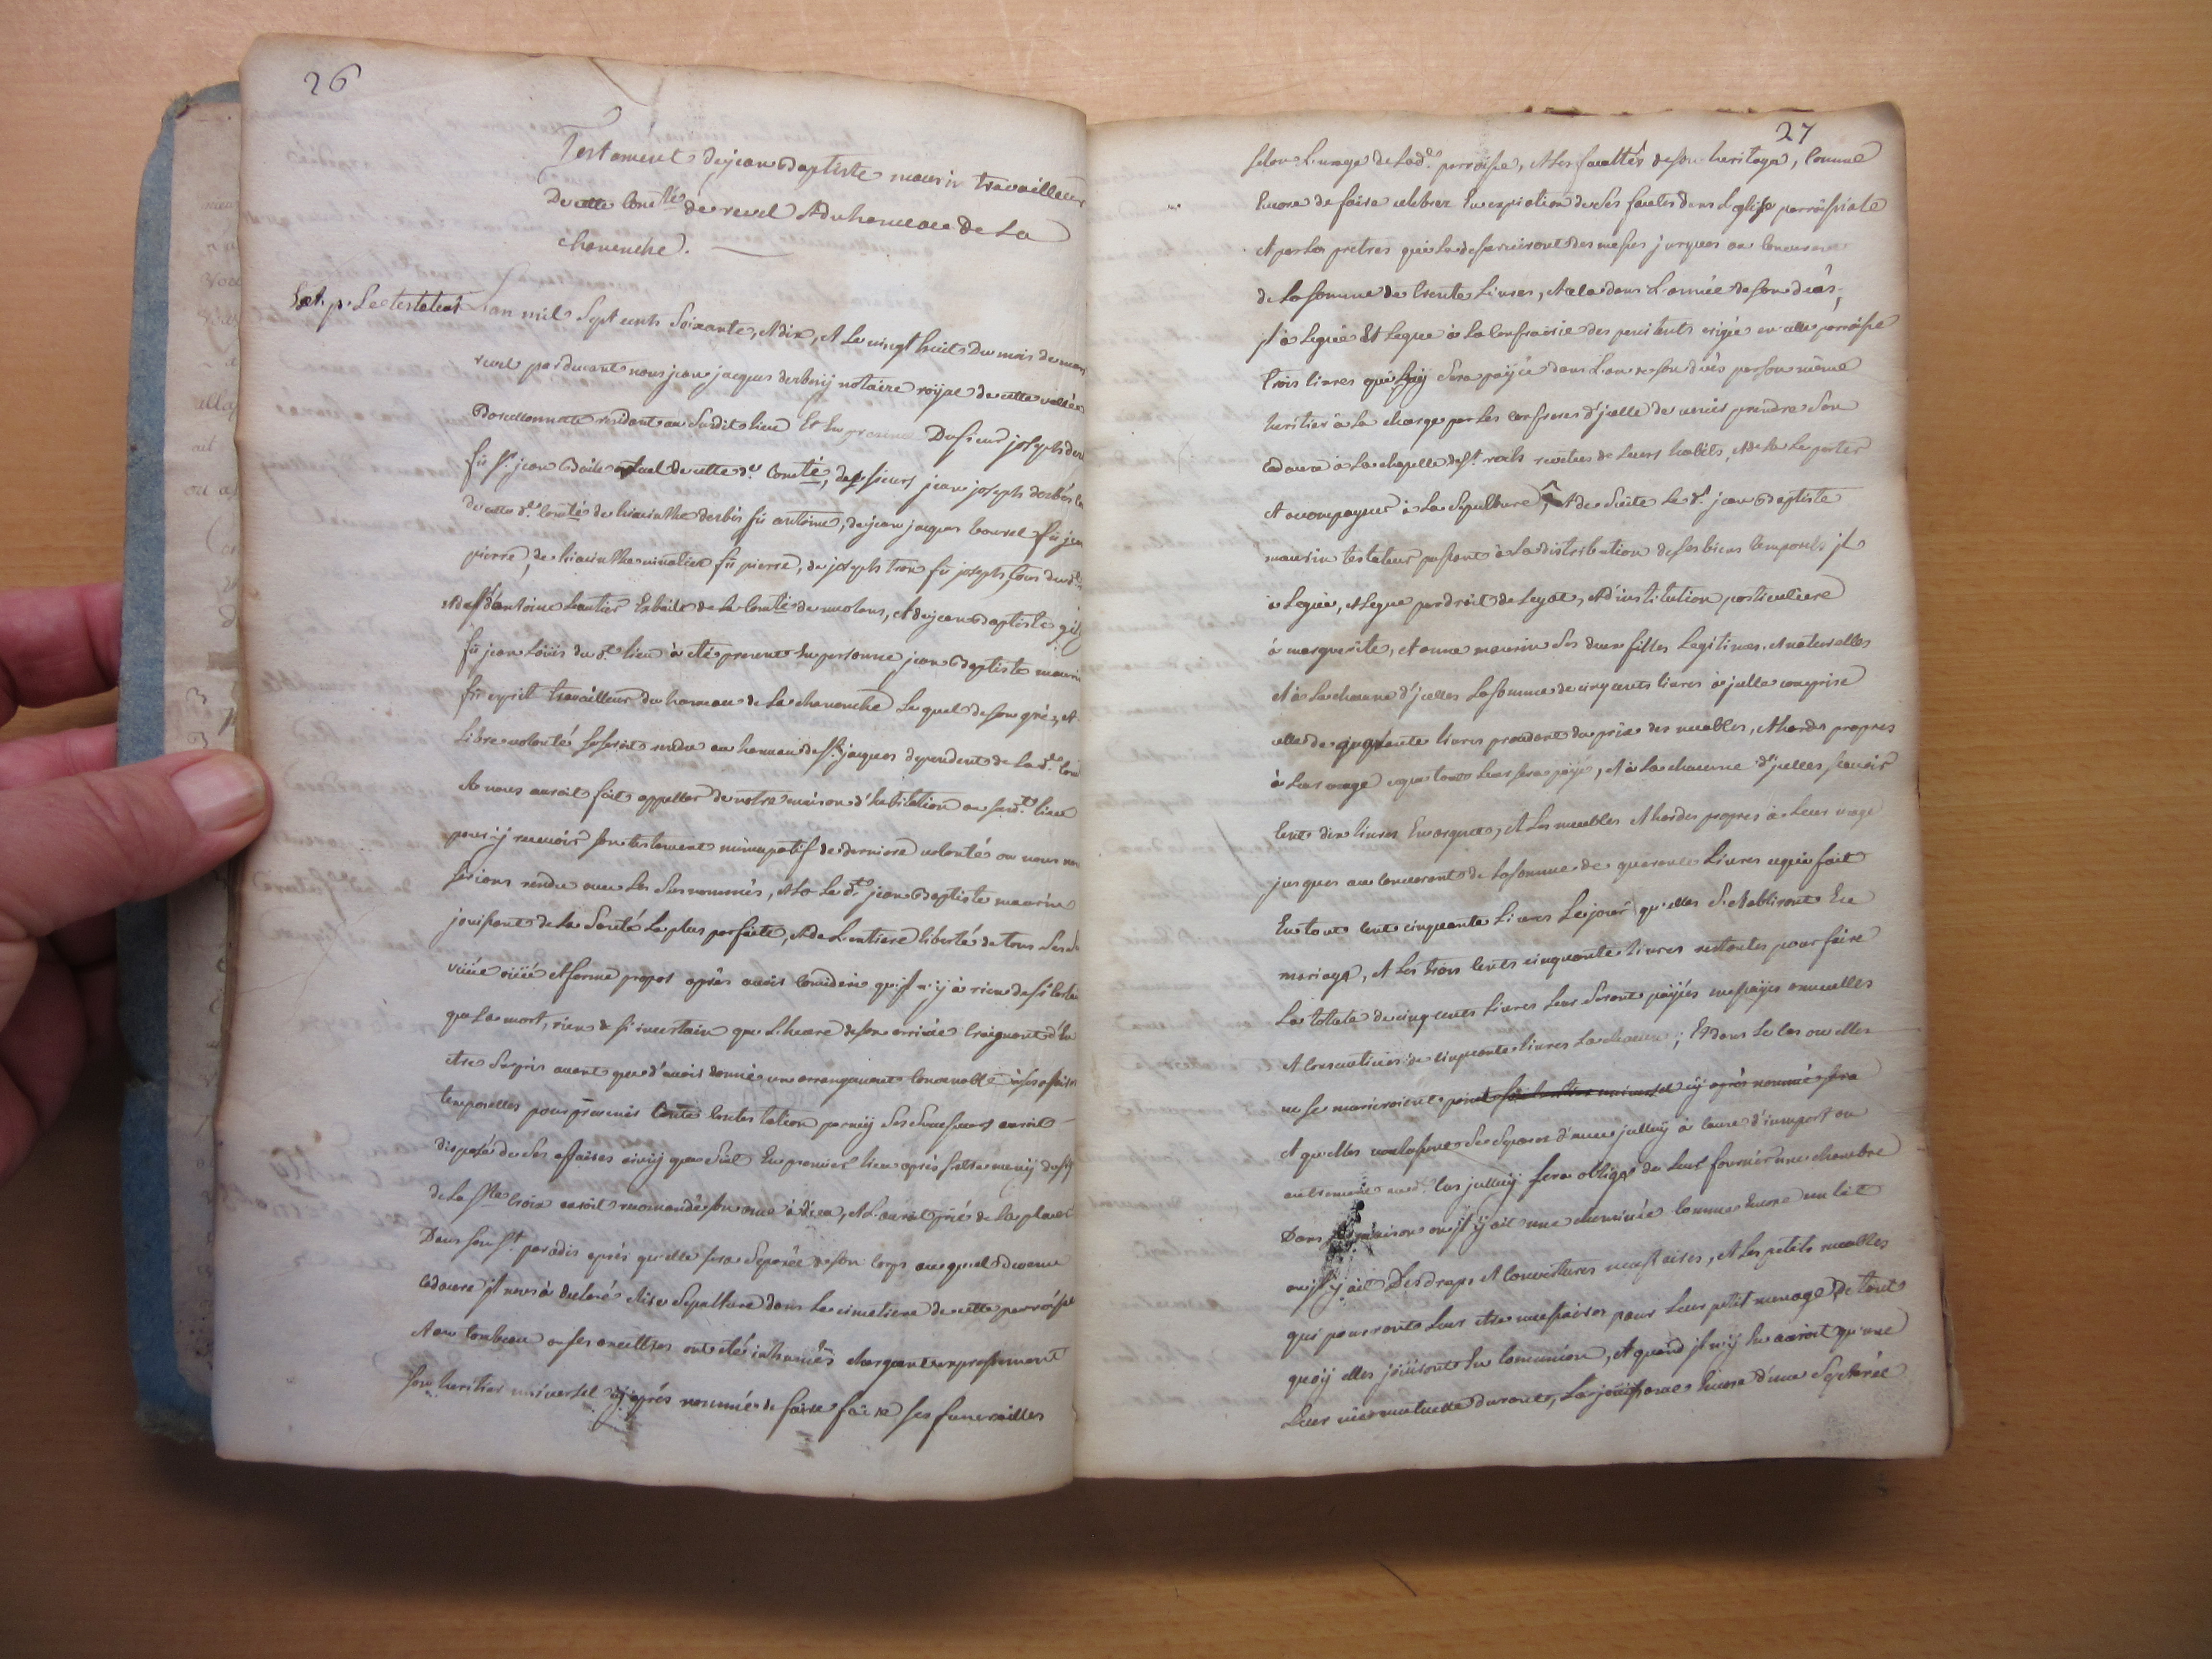 26
Testament de jean Baptiste maurin travailleur
De cette Com.té de revel & du hameau de La
chanenche.
Ext. p.r Le testateur L'an mil Sept cents Soixante, & dix, & Le vingt huit Du mois de mars
revel par devant nous jean jacques derbesij notaire roÿal de cette vallée
residant au Susdit lieu Et En presence Du Sieur joseph
fû s.r jean Baile actuel de cette d.e Com.té, de sieurs jean joseph derbés
de cette d.e Com.té de hiacinthe derbés fû antoine, de jean jacques fû jean
pierre, de hiacinthe fû pierre, de joseph tron fû joseph tous du d.
& de S.r antoine Lautier Exbaile de la Com.té de meolans, & de jean Baptiste
fû jean Loüis du d.t lieu à eté present En personne jean Baptiste maurin
fû travailleur du hameau de La chanenche Lequel de son gré, &
Libre volonté Se seroit rendu au hameau de S.t jacques dependent de La d.e Com
& nous auroit fait appeller de notre maison d'habitation au sud.t lieu
pour ij recevoir son testament nuncupatif de derniere volonté ou nous nous
serions rendu avec Les Susnommés, & La Le d.t jean Baptiste maurin
jouissant de La Santé La plus parfaite, & de L'entiere liberté de tous Ses
veüe oüie & ferme propos après avoir Consideré qu'il n'ij a rien de si Certain
que La mort, rien de si incertain que L'heure de son arrivée Craignant d'En
etre Surpris avant que d'avoir donné un arrangement Convenable à ses affaires
temporelles pour prevenir toute Contestation parmij Ses Successeurs auroit
disposé de Ses affaires ainsij que Suit En premier lieu après s'etre munij du Sig
de La S.te Croix auroit recomandé son ame à dieu, & L'auroit prié de La placer
Dans son S.t paradis après qu'elle sera Separée de son Corps au quel devenu
Cadavre jl nous à declaré elire Sepulture dans Le cimetiere de cette parroisse
& au tombeau ou ses ancettres ont eté inhumés chargeant expressement
Son heritier universel cij après nommé de faire faire ses funerailles
27
selon L'usage de Lad.e parroisse, & Les facultés de son heritage, Comme
Encore de faire celebrer En expiation de Ses fautes dans L'eglise parroissiale
& par Les pretres qui La desserviront des messes jusques au Concurrent
de La somme de trente Livres, & cela dans L'année de son decès,
jl à Legué Et Legue à La Confrairie des penitents erigée en cette parroisse
trois livres qui Luij Sera païée dans L'an de son decès par son même
heritier à La charge par Les Confreres d'jcelle de venir prendre Son
Cadavre à La chapelle de S.t roch revetus de Leurs habits, & de La Le porter
& accompagner à La Sepulture, & de Suite Le d.t jean Baptiste
maurin testateur passant à La distribution de Ses biens temporels jl
à Legué, & Legue par droit de Legat, & d'institution particuliere
à marguerite, & anne maurin Ses deux filles Legitimes, & naturelles
& à La chacune d'jcelles La somme de cinq cents livres à jcelle comprise
celle de quarante livres provenant du prix des meubles, & hardes propres
à Leur usage ce que tout Leur sera païé, & à La chacune d'jcelles sçavoir
Cent dix livres En argent, & Les meubles & hardes propres à Leur usage
jusques au Concurrent de La somme de quarante Livres ce qui fait
En tout Cent cinquante Livres Le jour qu'elles S'etabliront En
mariage, & Les trois Cents cinquante livres restantes pour faire
La totale de cinq cents Livres Leur Seront païées en païes annuelles
& Consecutives de cinquante livres La chacune; Et dans Le Cas ou elles
ne se marieroient point son heritier universel cij après nommé sera
& qu'elles voulussent Se Separer d'avec jcelluij à Cause d'insuport ou
autrement au d.t Cas jcelluij sera obligé de Leur fournir une chambre
Dans maison ou jl ij ait une cheminée Comme Encore un lit
ou jl ij ait Des draps & Couvertures necessaires, & Les petits meubles
qui pourront Leur etre necessaires pour Leur petit menage De tout
quoij elles joüiront En Commun, & quand jl n'ij En auroit qu'une
Leur vie mutuelle durant, La joüissance Encore d'une Septerée